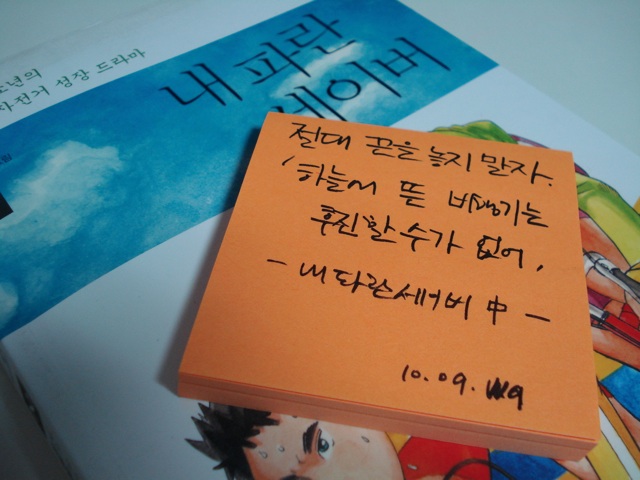 소년의
자전거 성장 드라마
내 파란
세이버
절대 끈을 놓지 말자.
'하늘에 뜬 비행기는
후진할 수가 없어,
- 내 파란 세이버 中 -
10. 09.